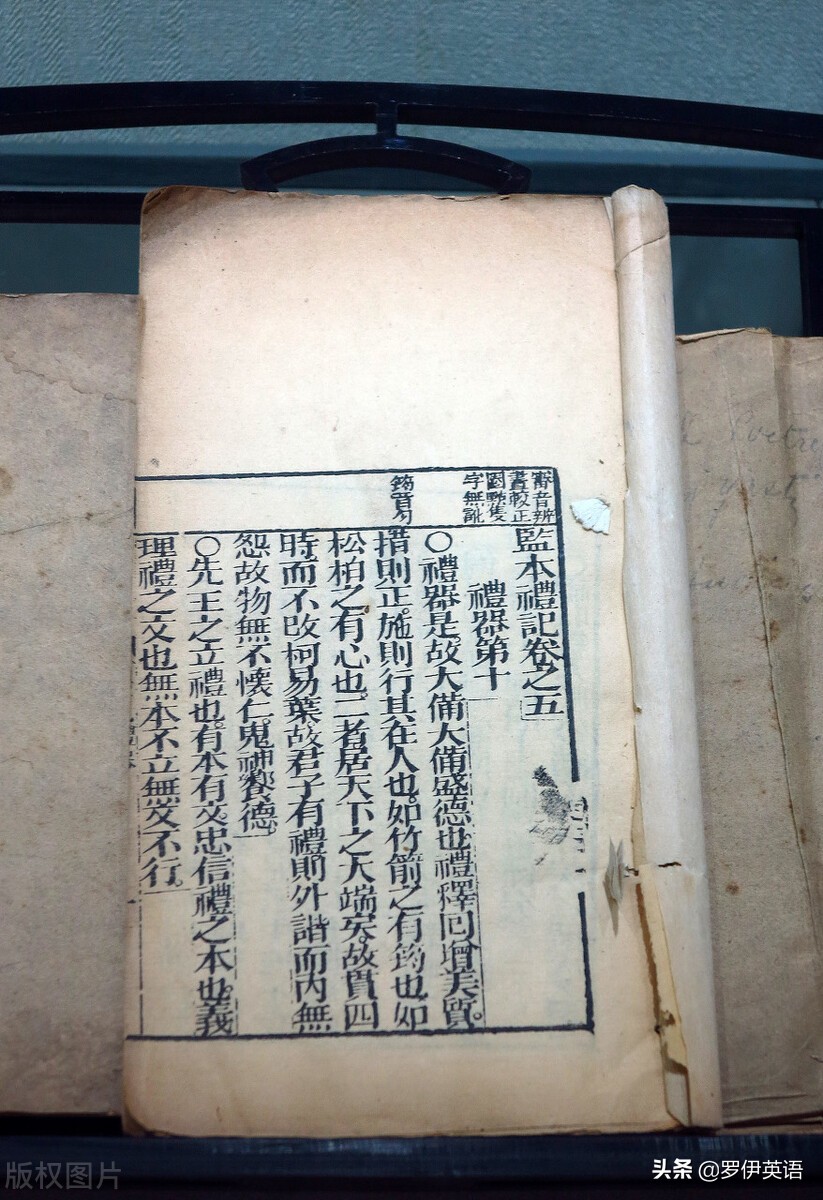 審音辨
畫較正
字無訛
監本禮記卷之五
禮器第十
○禮器是故大備大備盛德也禮釋回增美質。
措則正。施則行其在人也。如竹箭之有筠也。如
松柏之有心也。二者居天下之大端矣。故貫四
時。而不改柯易葉。故君子有禮則外諧而內無
怨故物無不懷仁。鬼神饗德。
○先王之立禮也。有本有文。忠信禮之本也。義
理禮之文也無本不立無文不行。
版权图片
头条 @罗伊英语